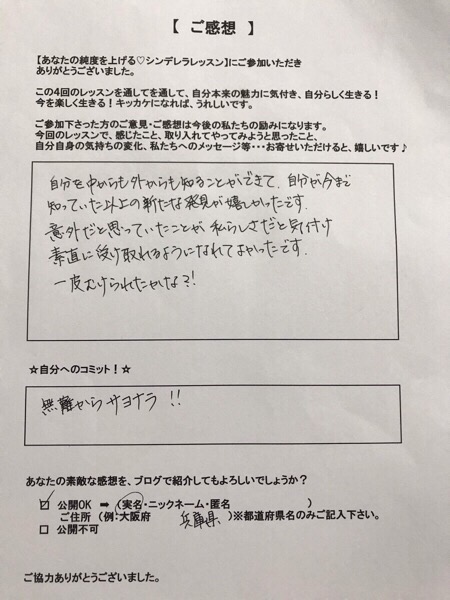 【 ご感想 】
【あなたの純度を上げる♡シンデレラレッスン】にご参加いただき
ありがとうございました。
この4回のレッスンを通してを通して、自分本来の魅力に気付き、自分らしく生きる！
今を楽しく生きる！キッカケになれば、うれしいです。
ご参加下さった方のご意見・ご感想は今後の私たちの励みになります。
今回のレッスンで、感じたこと、取り入れてやってみようと思ったこと、
自分自身の気持ちの変化、私たちへのメッセージ等・・・お寄せいただけると、嬉しいです♪
自分を中からも外からも知ることができて、自分が今まで
知っていた以上の新たな発見が嬉しかったです。
意外だと思っていたことが私らしさだと気付け
素直に受け取れるようになれてよかったです。
一皮むけられたかな?!
☆自分へのコミット！☆
無難からサヨナラ!!
あなたの素敵な感想を、ブログで紹介してもよろしいでしょうか？
☑ 公開OK ➡ (実名・ニックネーム・匿名 )
ご住所 (例:大阪府 兵庫県 )※都道府県名のみご記入下さい。
□ 公開不可
ご協力ありがとうございました。